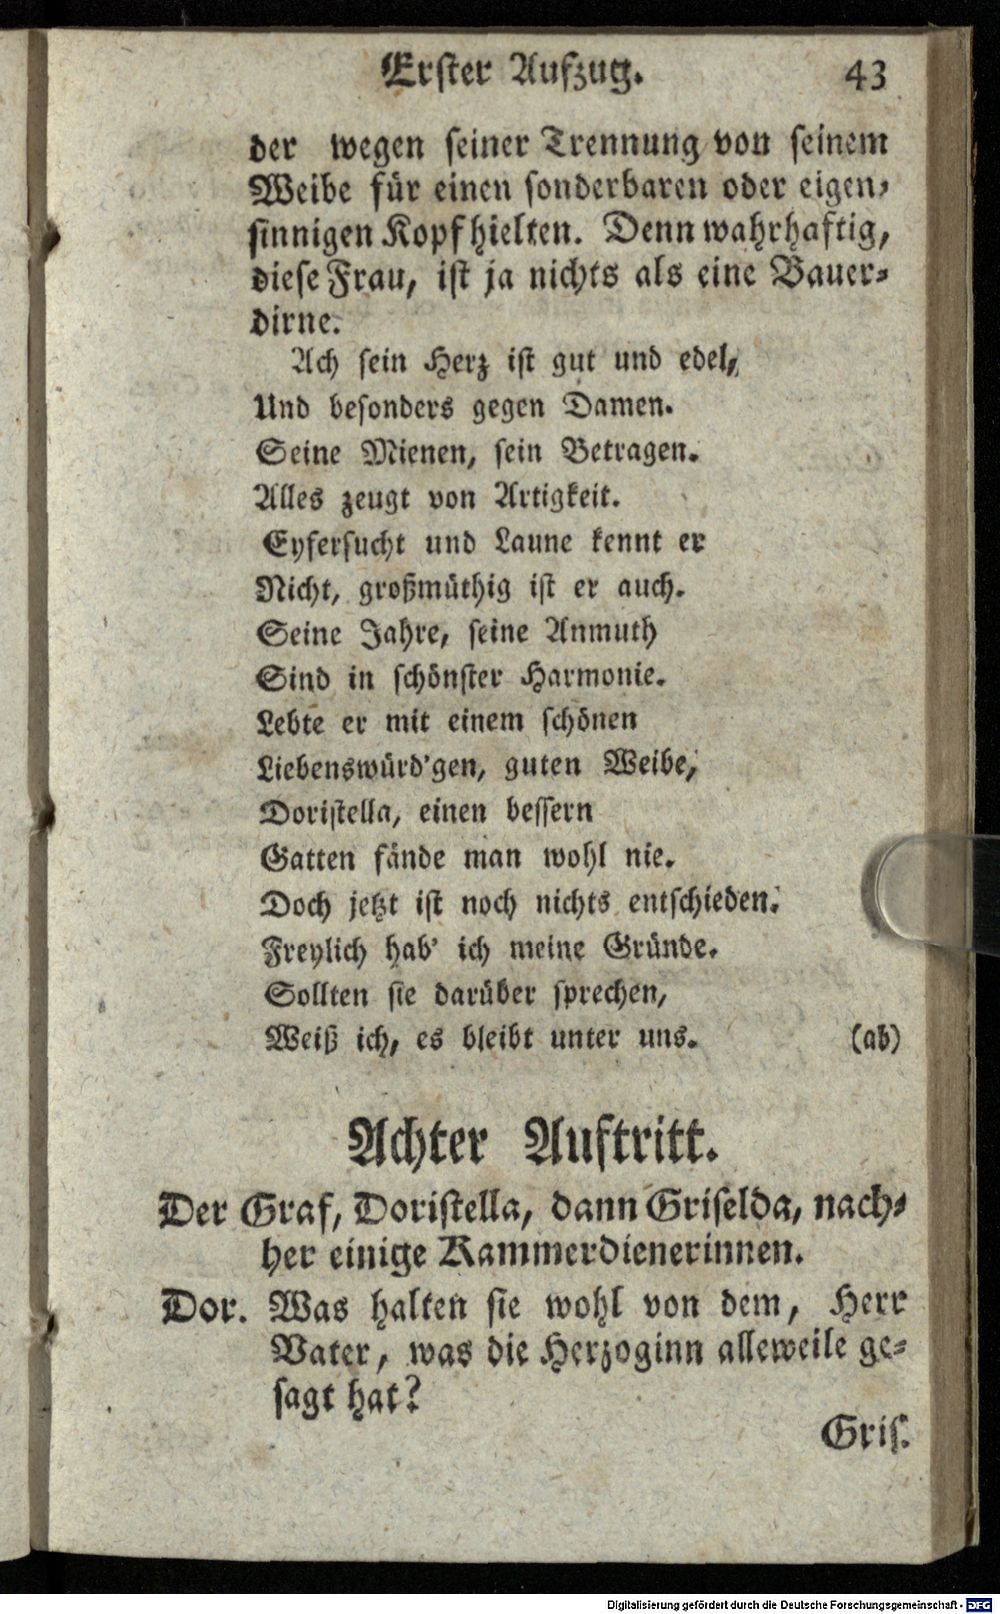 Erster Aufzug. 43
der wegen seiner Trennung von seinem
Weibe für einen sonderbaren oder eigen-
sinnigen Kopf hielten. Denn wahrhaftig,
diese Frau, ist ja nichts als eine Bauer-
dirne.
Ach sein Herz ist gut und edel,
Und besonders gegen Damen.
Seine Mienen, sein Betragen.
Alles zeugt von Artigkeit.
Eyfersucht und Laune kennt er
Nicht, großmüthig ist er auch.
Seine Jahre, seine Anmuth
Sind in schönster Harmonie.
Lebte er mit einem schönen
Liebenswürd'gen, guten Weibe,
Doristella, einen bessern
Gatten fände man wohl nie.
Doch jetzt ist noch nichts entschieden.
Freylich hab' ich meine Gründe.
Sollten sie darüber sprechen,
Weiß ich, es bleibt unter uns. (ab)
Achter Auftritt.
Der Graf, Doristella, dann Griselda, nach-
her einige Kammerdienerinnen.
Dor. Was halten sie wohl von dem, Herr
Vater, was die Herzoginn alleweile ge-
sagt hat?
Gris.
Digitalisierung gefördert durch die Deutsche Forschungsgemeinschaft - DFG